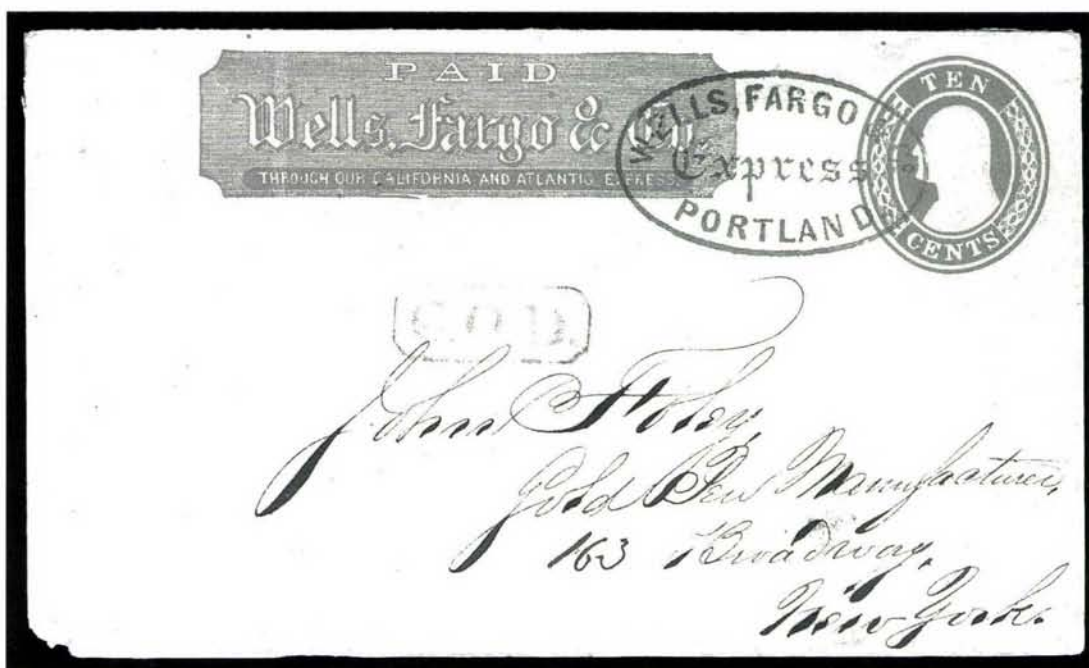 PAID
Wells, Fargo & Co.
THROUGH OUR CALIFORNIA AND ATLANTIC EXPRESS.
WELLS, FARGO
Express
PORTLAND
TEN
CENTS
C.O.D.
John Foley,
Gold Pen Manufacturer,
163 Broadway,
New York.